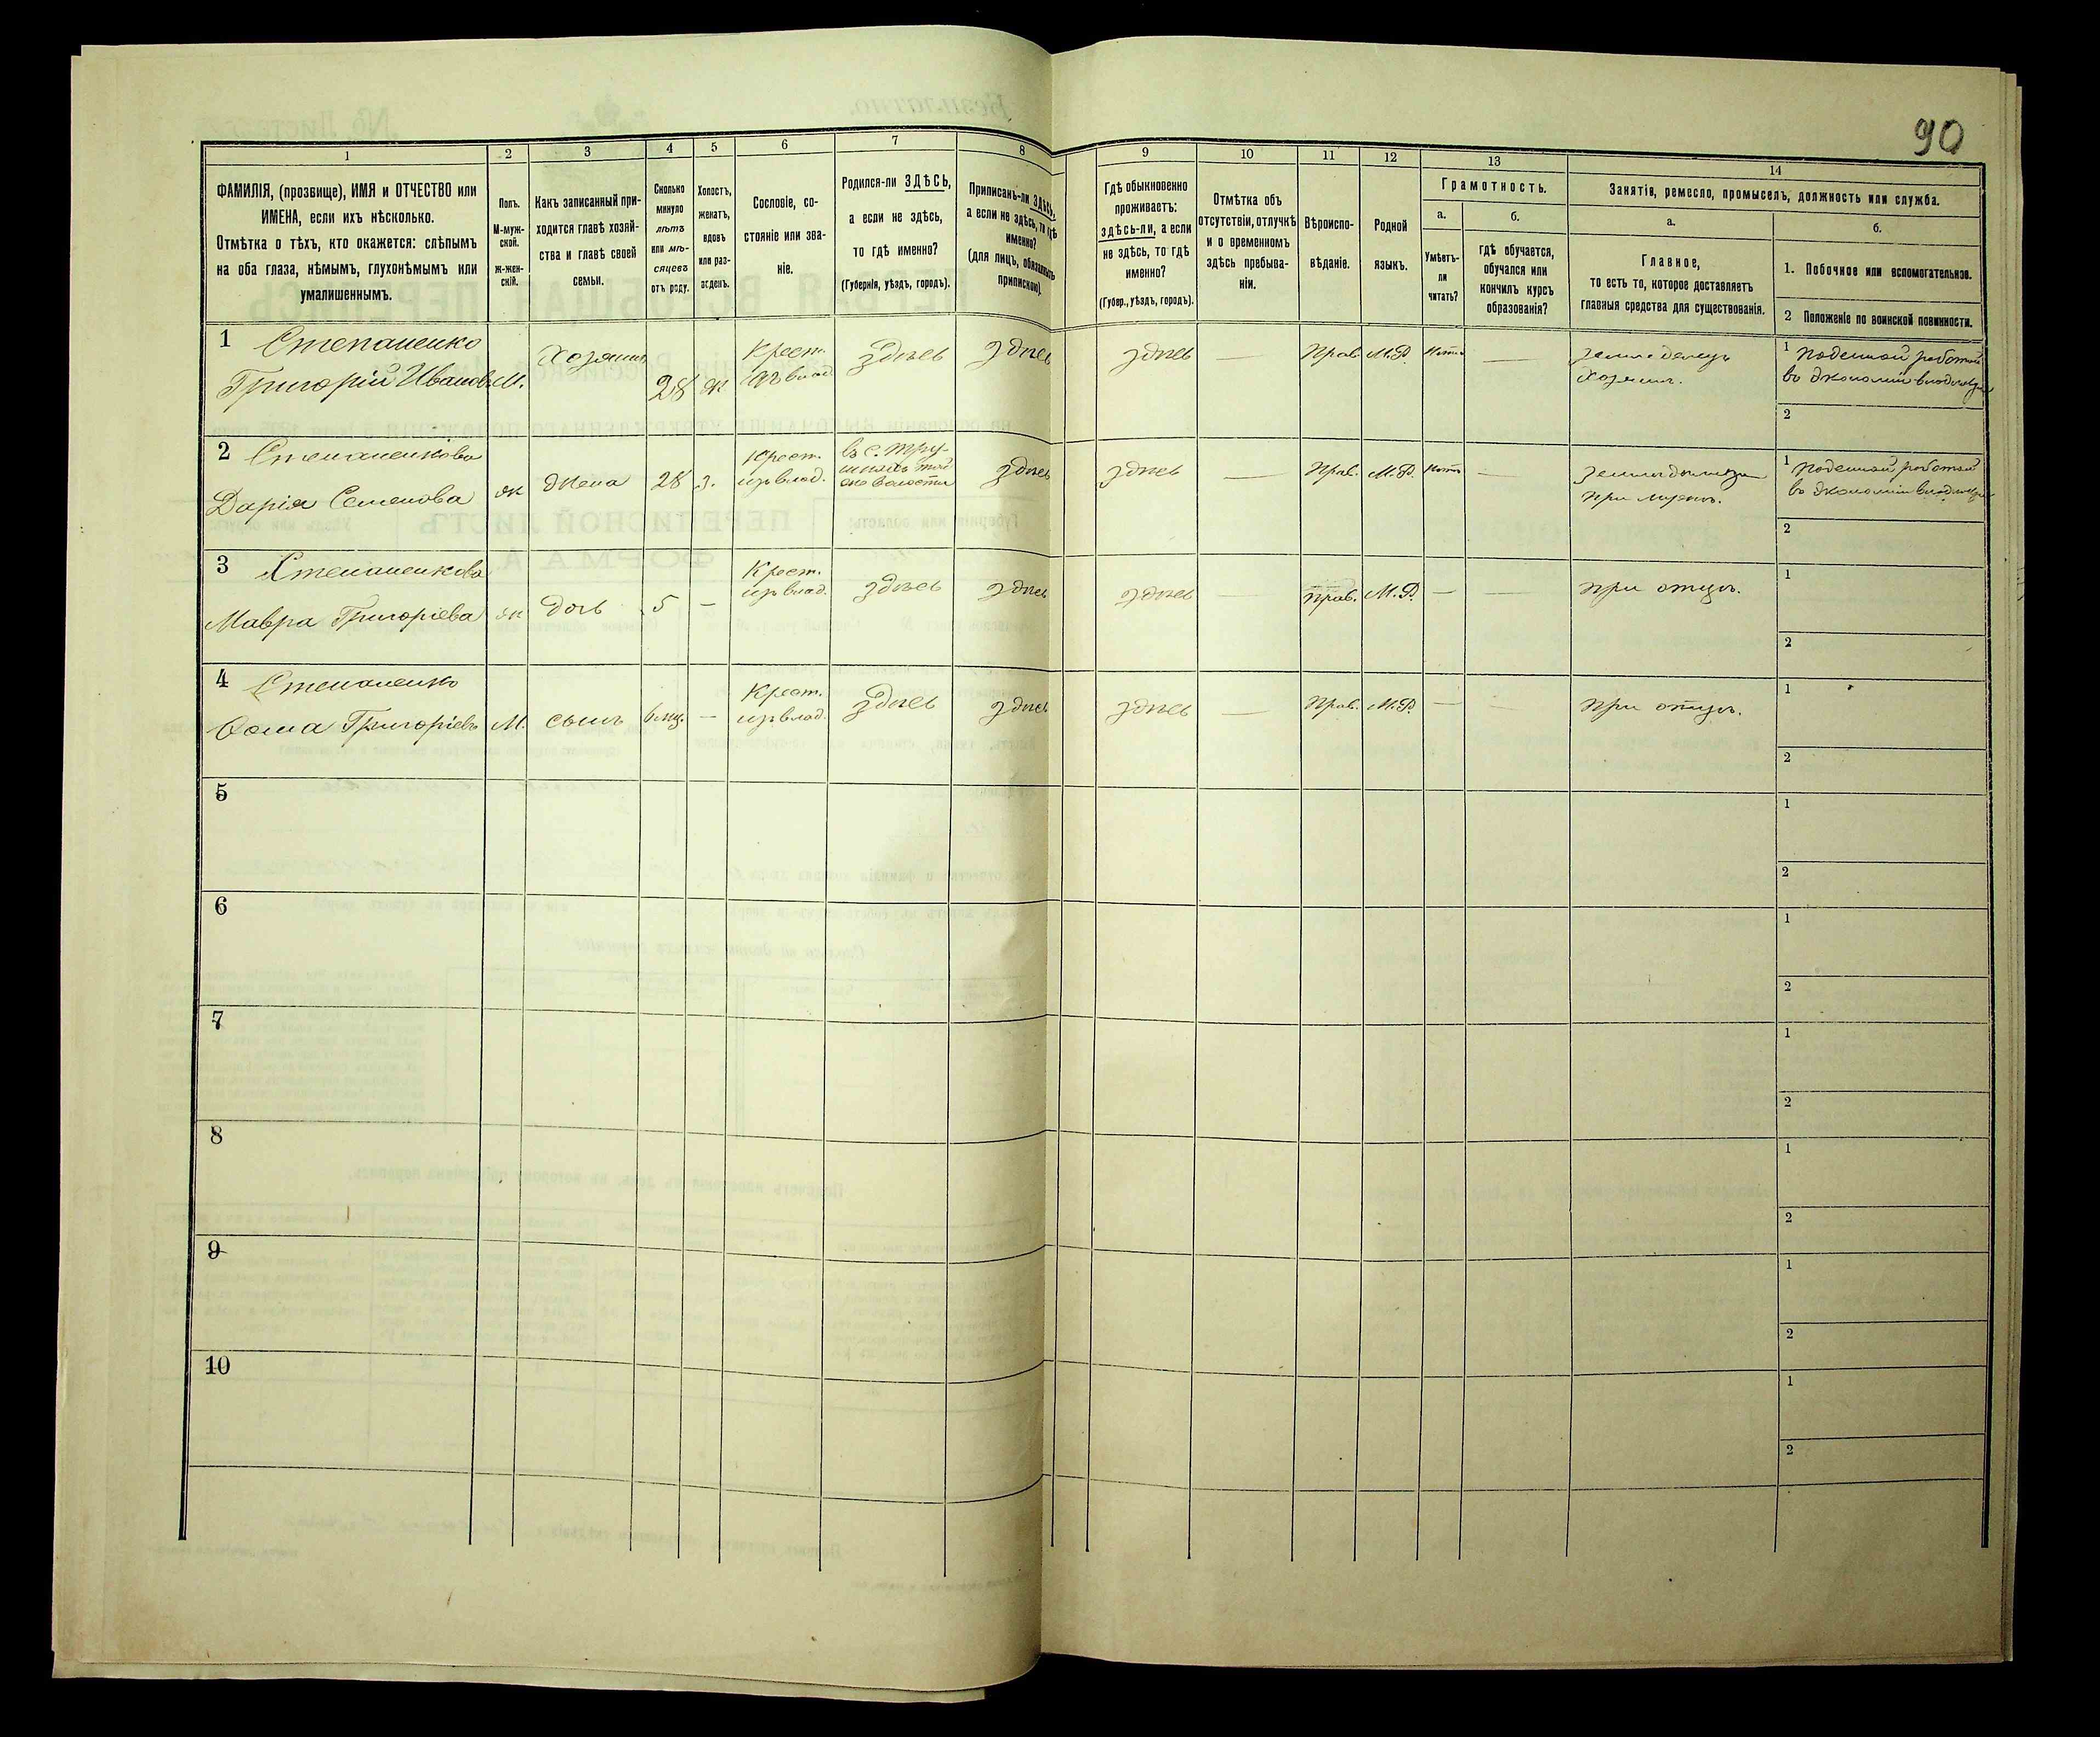 90
1 2 3 4 5 6 7 8 9 10 11 12 13 14
ФАМИЛІЯ, (прозвище), ИМЯ и ОТЧЕСТВО или
ИМЕНА, если ихъ нѣсколько.
Отмѣтка о тѣхъ, кто окажется: слѣпымъ
на оба глаза, нѣмымъ, глухонѣмымъ или
умалишеннымъ.
Полъ.
М-муж-
ской.
ж-жен-
скій.
Какъ записанный при-
ходится главѣ хозяй-
ства и главѣ своей
семьи.
Сколько
минуло
лѣтъ
или мѣ-
сяцевъ
отъ роду.
Холостъ,
женатъ,
вдовъ
или раз-
веденъ.
Сословіе, со-
стояніе или зва-
ніе.
Родился-ли ЗДѢСЬ,
а если не здѣсь,
то гдѣ именно?
(Губернія, уѣздъ, городъ).
Приписанъ-ли ЗДѢСЬ,
а если не здѣсь, то гдѣ
именно?
(для лицъ, обязанныхъ
припискою).
Гдѣ обыкновенно
проживаетъ:
здѣсь-ли, а если
не здѣсь, то гдѣ
именно?
(Губер., уѣздъ, городъ).
Отмѣтка объ
отсутствіи, отлучкѣ
и о временномъ
здѣсь пребыва-
ніи.
Вѣроиспо-
вѣданіе.
Родной
языкъ.
Грамотность.
а.
Умѣетъ-
ли
читать?
б.
гдѣ обучается,
обучался или
кончилъ курсъ
образованія?
Занятіе, ремесло, промыселъ, должность или служба.
а.
Главное,
то есть то, которое доставляетъ
главныя средства для существованія.
б.
1. Побочное или вспомогательное.
2 Положеніе по воинской повинности.
1 Степаненко
Григорій Иванов. М. Хозяинъ 28 ж Крест. изъ влад. здѣсь здѣсь здѣсь — Прав. М.Р. нѣтъ — земледѣлецъ хозяинъ. 1 поденной работой
въ экономіи владѣльца
2
2 Степаненкова
Дарія Семенова ж жена 28 з. Крест. изъ влад. въ с. здѣсь здѣсь — Прав. М.Р. нѣтъ — при мужѣ. 1 поденной работой
въ экономіи владѣльца
2
3 Степаненкова
Мавра Григоріева ж дочь 5 — Крест. изъ влад. здѣсь здѣсь здѣсь — Прав. М.Р. — — при отцѣ. 1
2
4 Степаненко
Ѳома Григоріевъ М. сынъ 6 мц. — Крест. изъ влад. здѣсь здѣсь здѣсь — Прав. М.Р. — — при отцѣ. 1
2
5 1
2
6 1
2
7 1
2
8 1
2
9 1
2
10 1
2